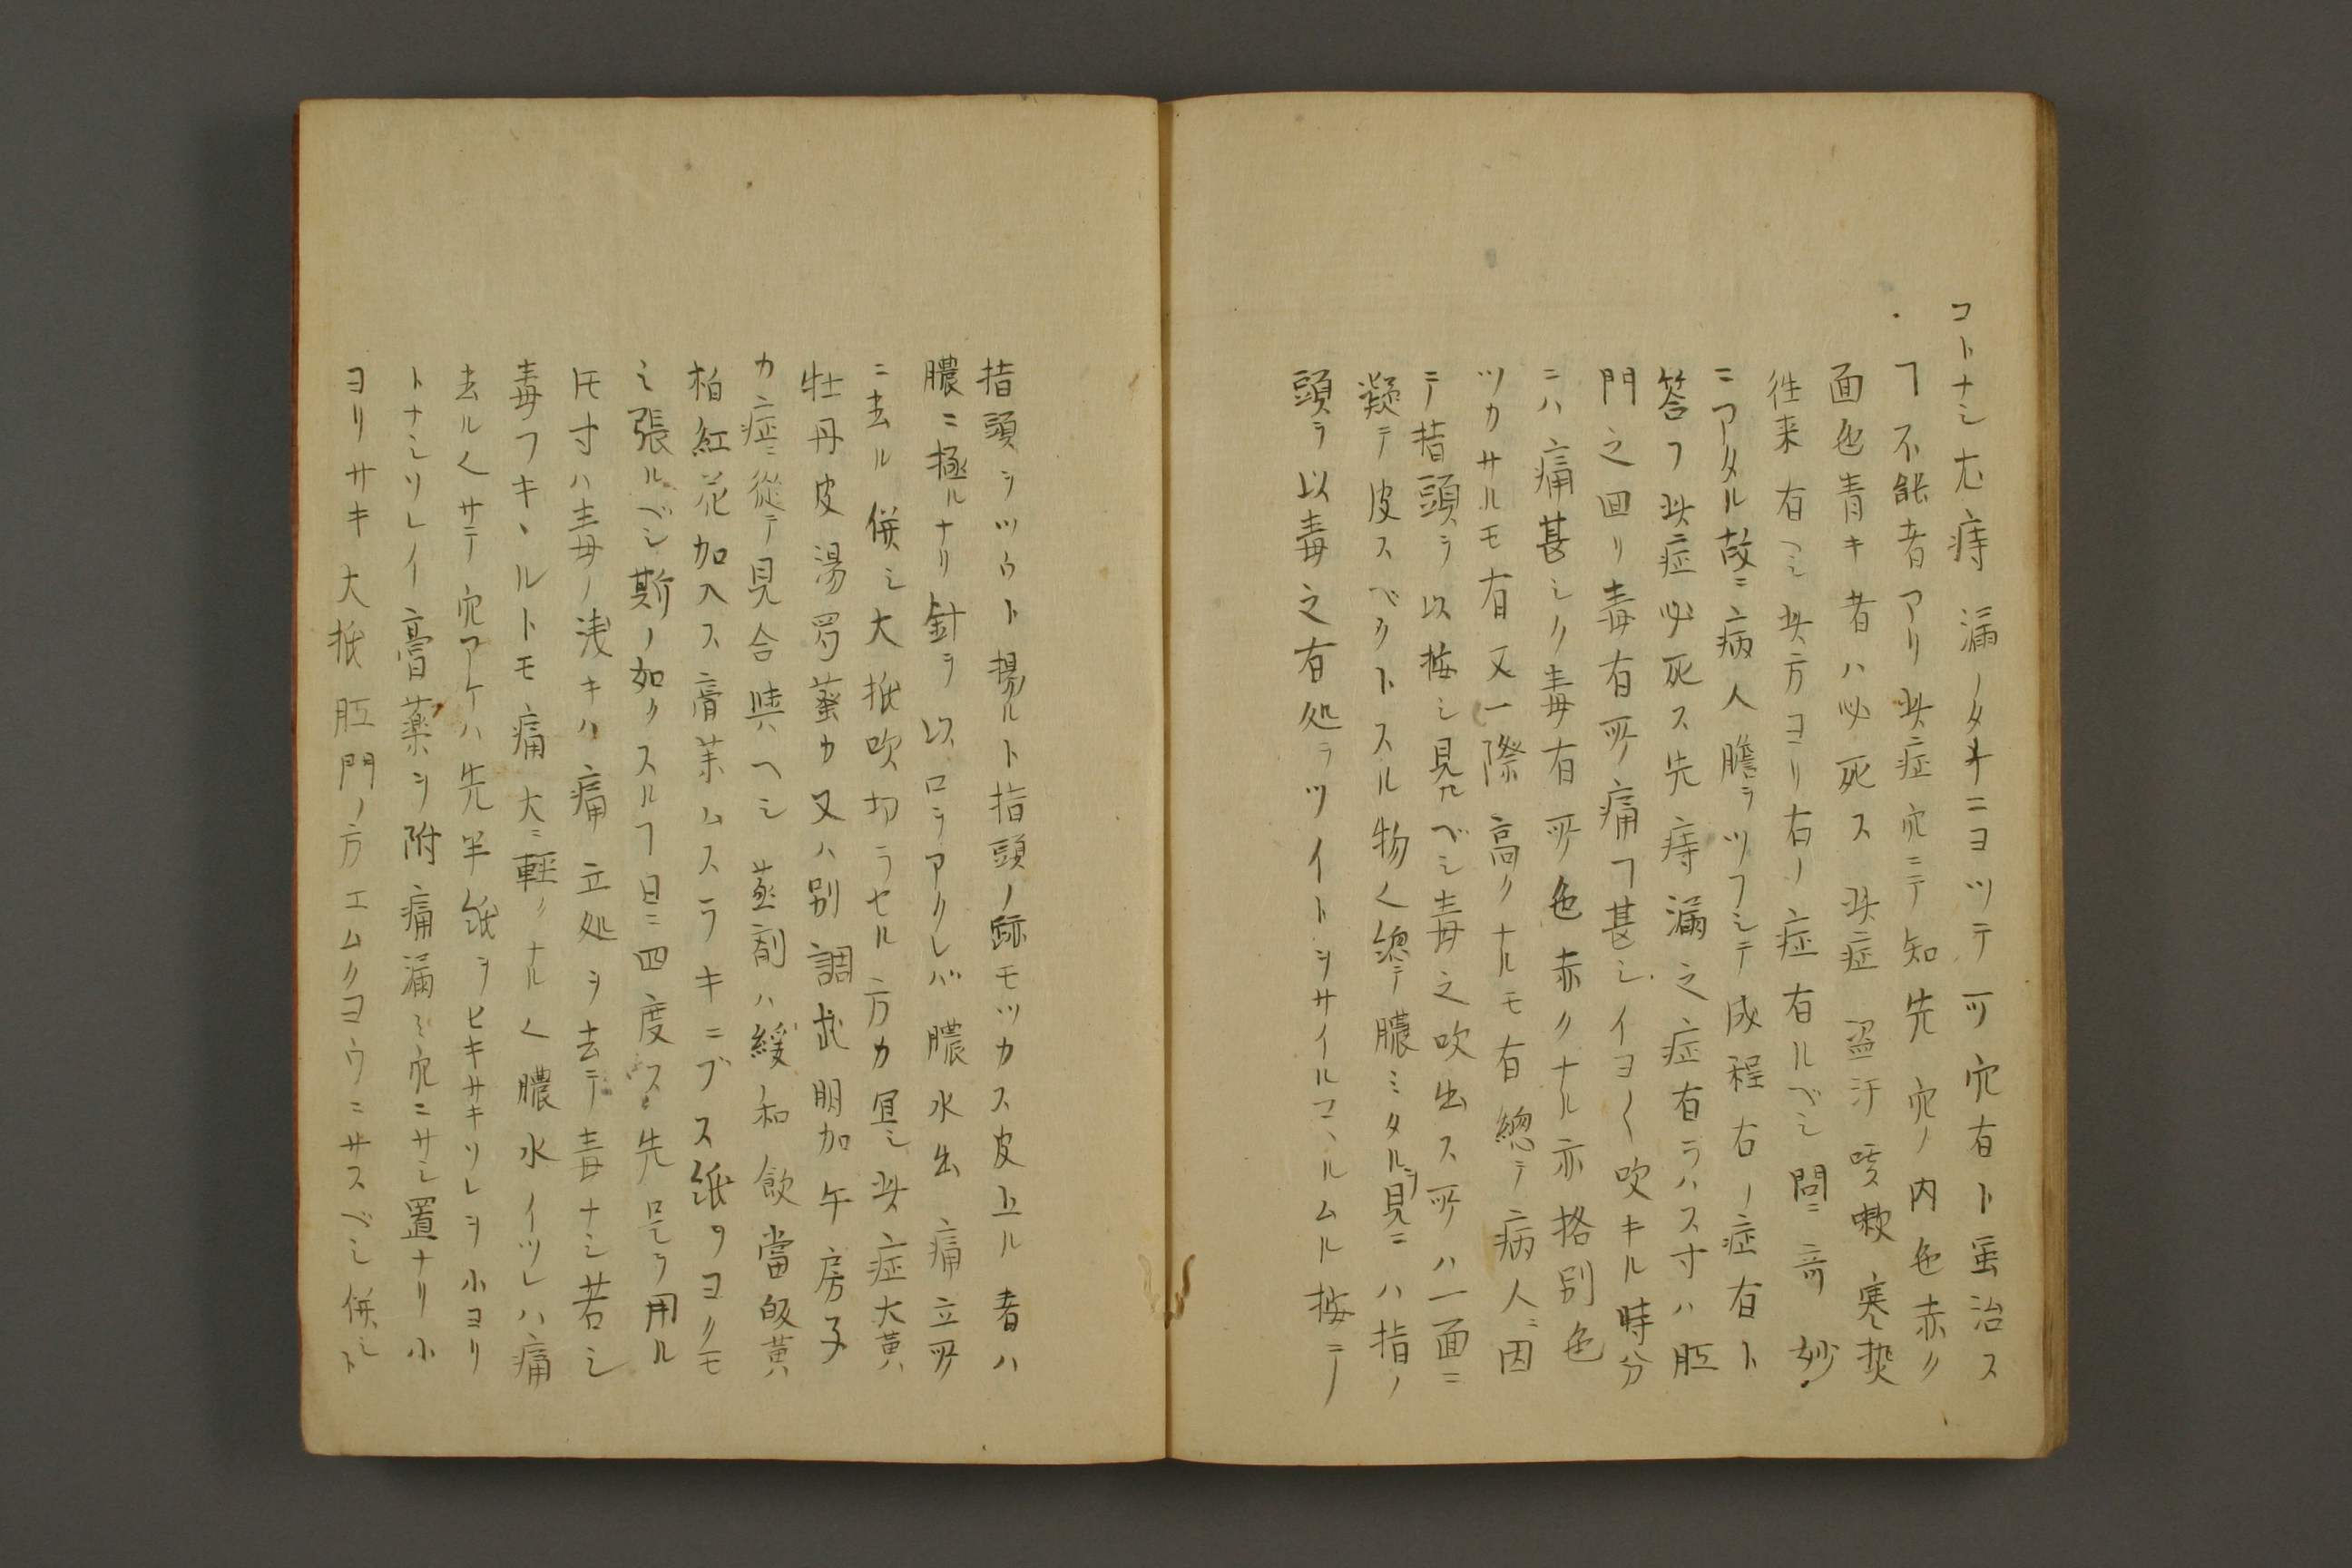 コトナシ尤痔漏ノタチニヨツテ所穴有ト虽治ス
ヿ不能者アリ此症穴ニテ知先穴ノ内色赤ク
面色青キ者ハ必死ス此症盗汗咳嗽寒熱
往来有ヘシ此方ヨリ右ノ症有ルベシ問ニ奇妙
ニアタル故ニ病人膽ヲツフシテ成程右ノ症有ト
答フ此症必死ス先痔漏之症有ラハスヿハ肛
門之回リ毒有所痛ヿ甚シイヨ〱吹キル時分
ニハ痛甚シク毒有所色赤クナル亦格別色
ツカサルモ有又一際高クナルモ有總テ病人ニ因
テ指頭ヲ以按シ見ルベシ毒之吹出ス所ハ一面ニ
凝テ皮スベクトスル物〱總テ膿ミタルヲ見ニハ指ノ
頭ヲ以毒之有処ヲツイトヲサイルコヽルムル按ニテ
指頭ヲツウト揚ルト指頭ノ跡モツカス皮上ル者ハ
膿ニ極ルナリ針ヲ以口ヲアクレバ膿水出痛立所
ニ去ル併シ大抵吹切ラセル方カ冝シ此症大黄
牡丹皮湯蜀藜カ又ハ別調武明加午房子
カ症ニ從テ見合與ヘシ蒸剤ハ緩和飲當皈黄
柏紅花加入ス膏茉ムスラキニブス紙ヲヨクモ
ミ張ルベシ斯ノ如クスルヿ日ニ四度ス先是ヲ用ル
圧寸ハ毒ノ浅キハ痛立処ヲ去テ毒ナシ若シ
毒フキヽルトモ痛大ニ軽クナル〱膿水イツレハ痛
去ル〱サテ穴アケハ先半紙ヲヒキサキソレヲ小ヨリ
トナシソレイ膏薬ヲ附痛漏ミ穴ニサシ置ナリ小
ヨリサキ大抵肛門ノ方エムクヨウニサスベシ併シト